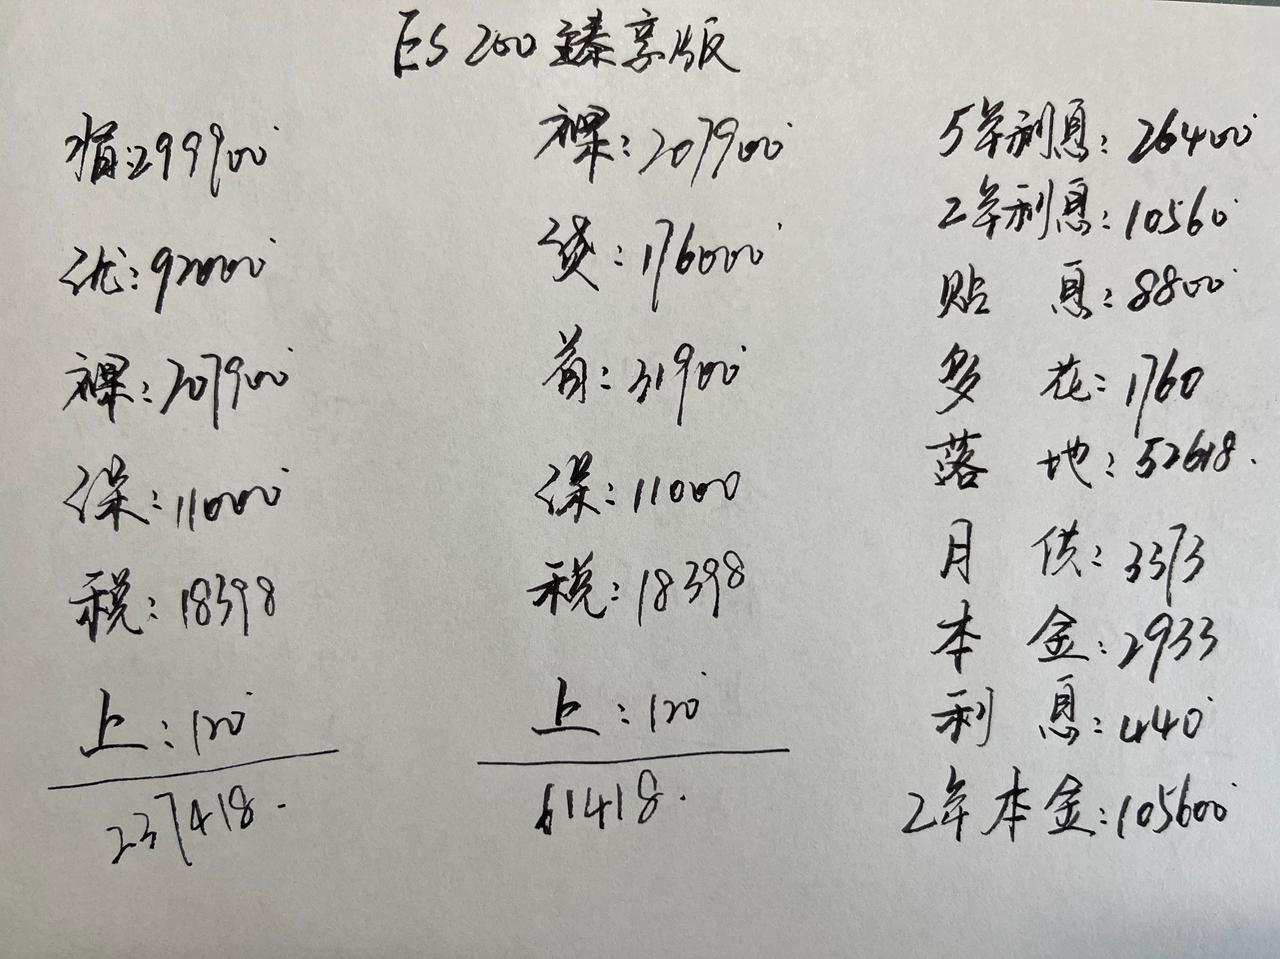 ES200臻享版
指:299900
优:92000
裸:207900
保:11000
税:18398
上:120
237418.
裸:207900
贷:176000
首:31900
保:11000
税:18398
上:120
61418.
5年利息:26400
2年利息:10560
贴息:8800
多花:1760
落地:52618.
月供:3373
本金:2933
利息:440
2年本金:105600